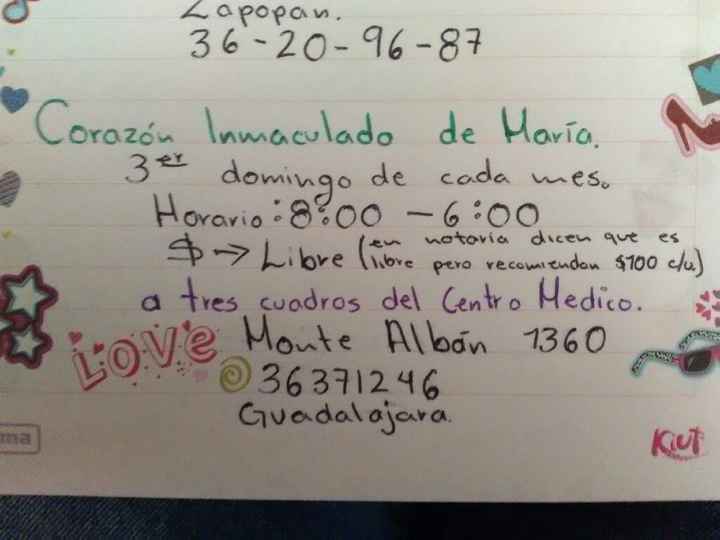 Zapopan.
36-20-96-87
Corazón Inmaculado de María.
3er domingo de cada mes.
Horario: 8:00 - 6:00
$ → Libre (en notaría dicen que es
libre pero recomiendan $100 c/u)
a tres cuadros del Centro Medico.
LOVE Monte Albán 1360
36371246
Guadalajara.
ma
Kiut